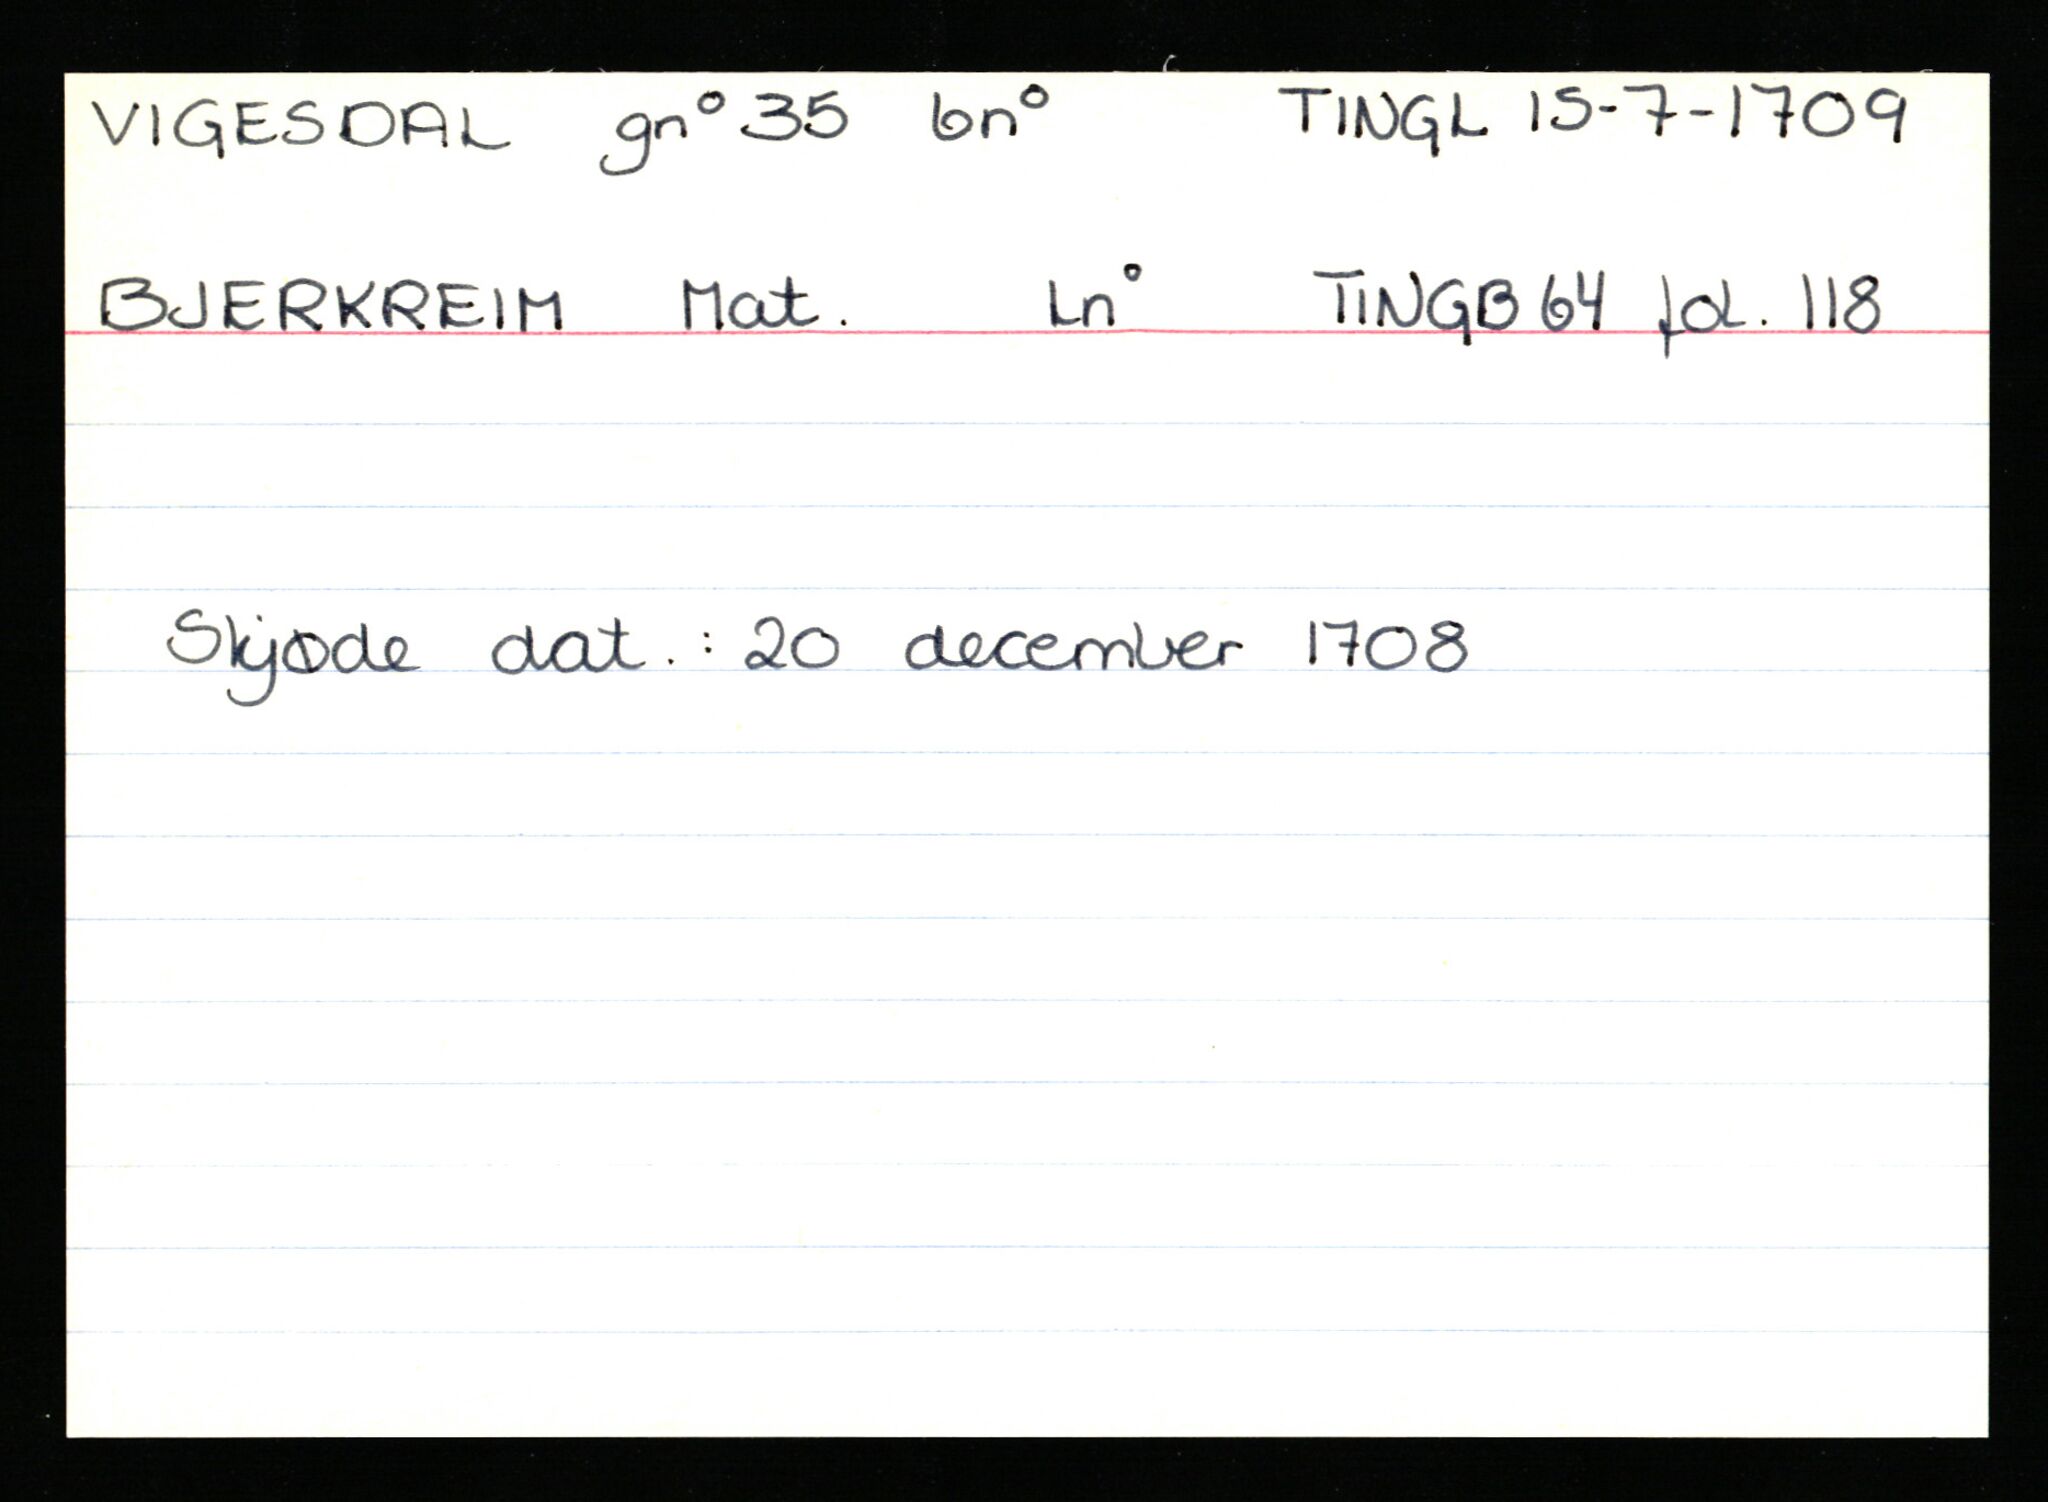 VIGESDAL gn° 35 bn° TINGL 15-7-1709
BJERKREIM Mat. Ln° TINGB 64 fol. 118
Skjøde dat.: 20 december 1708